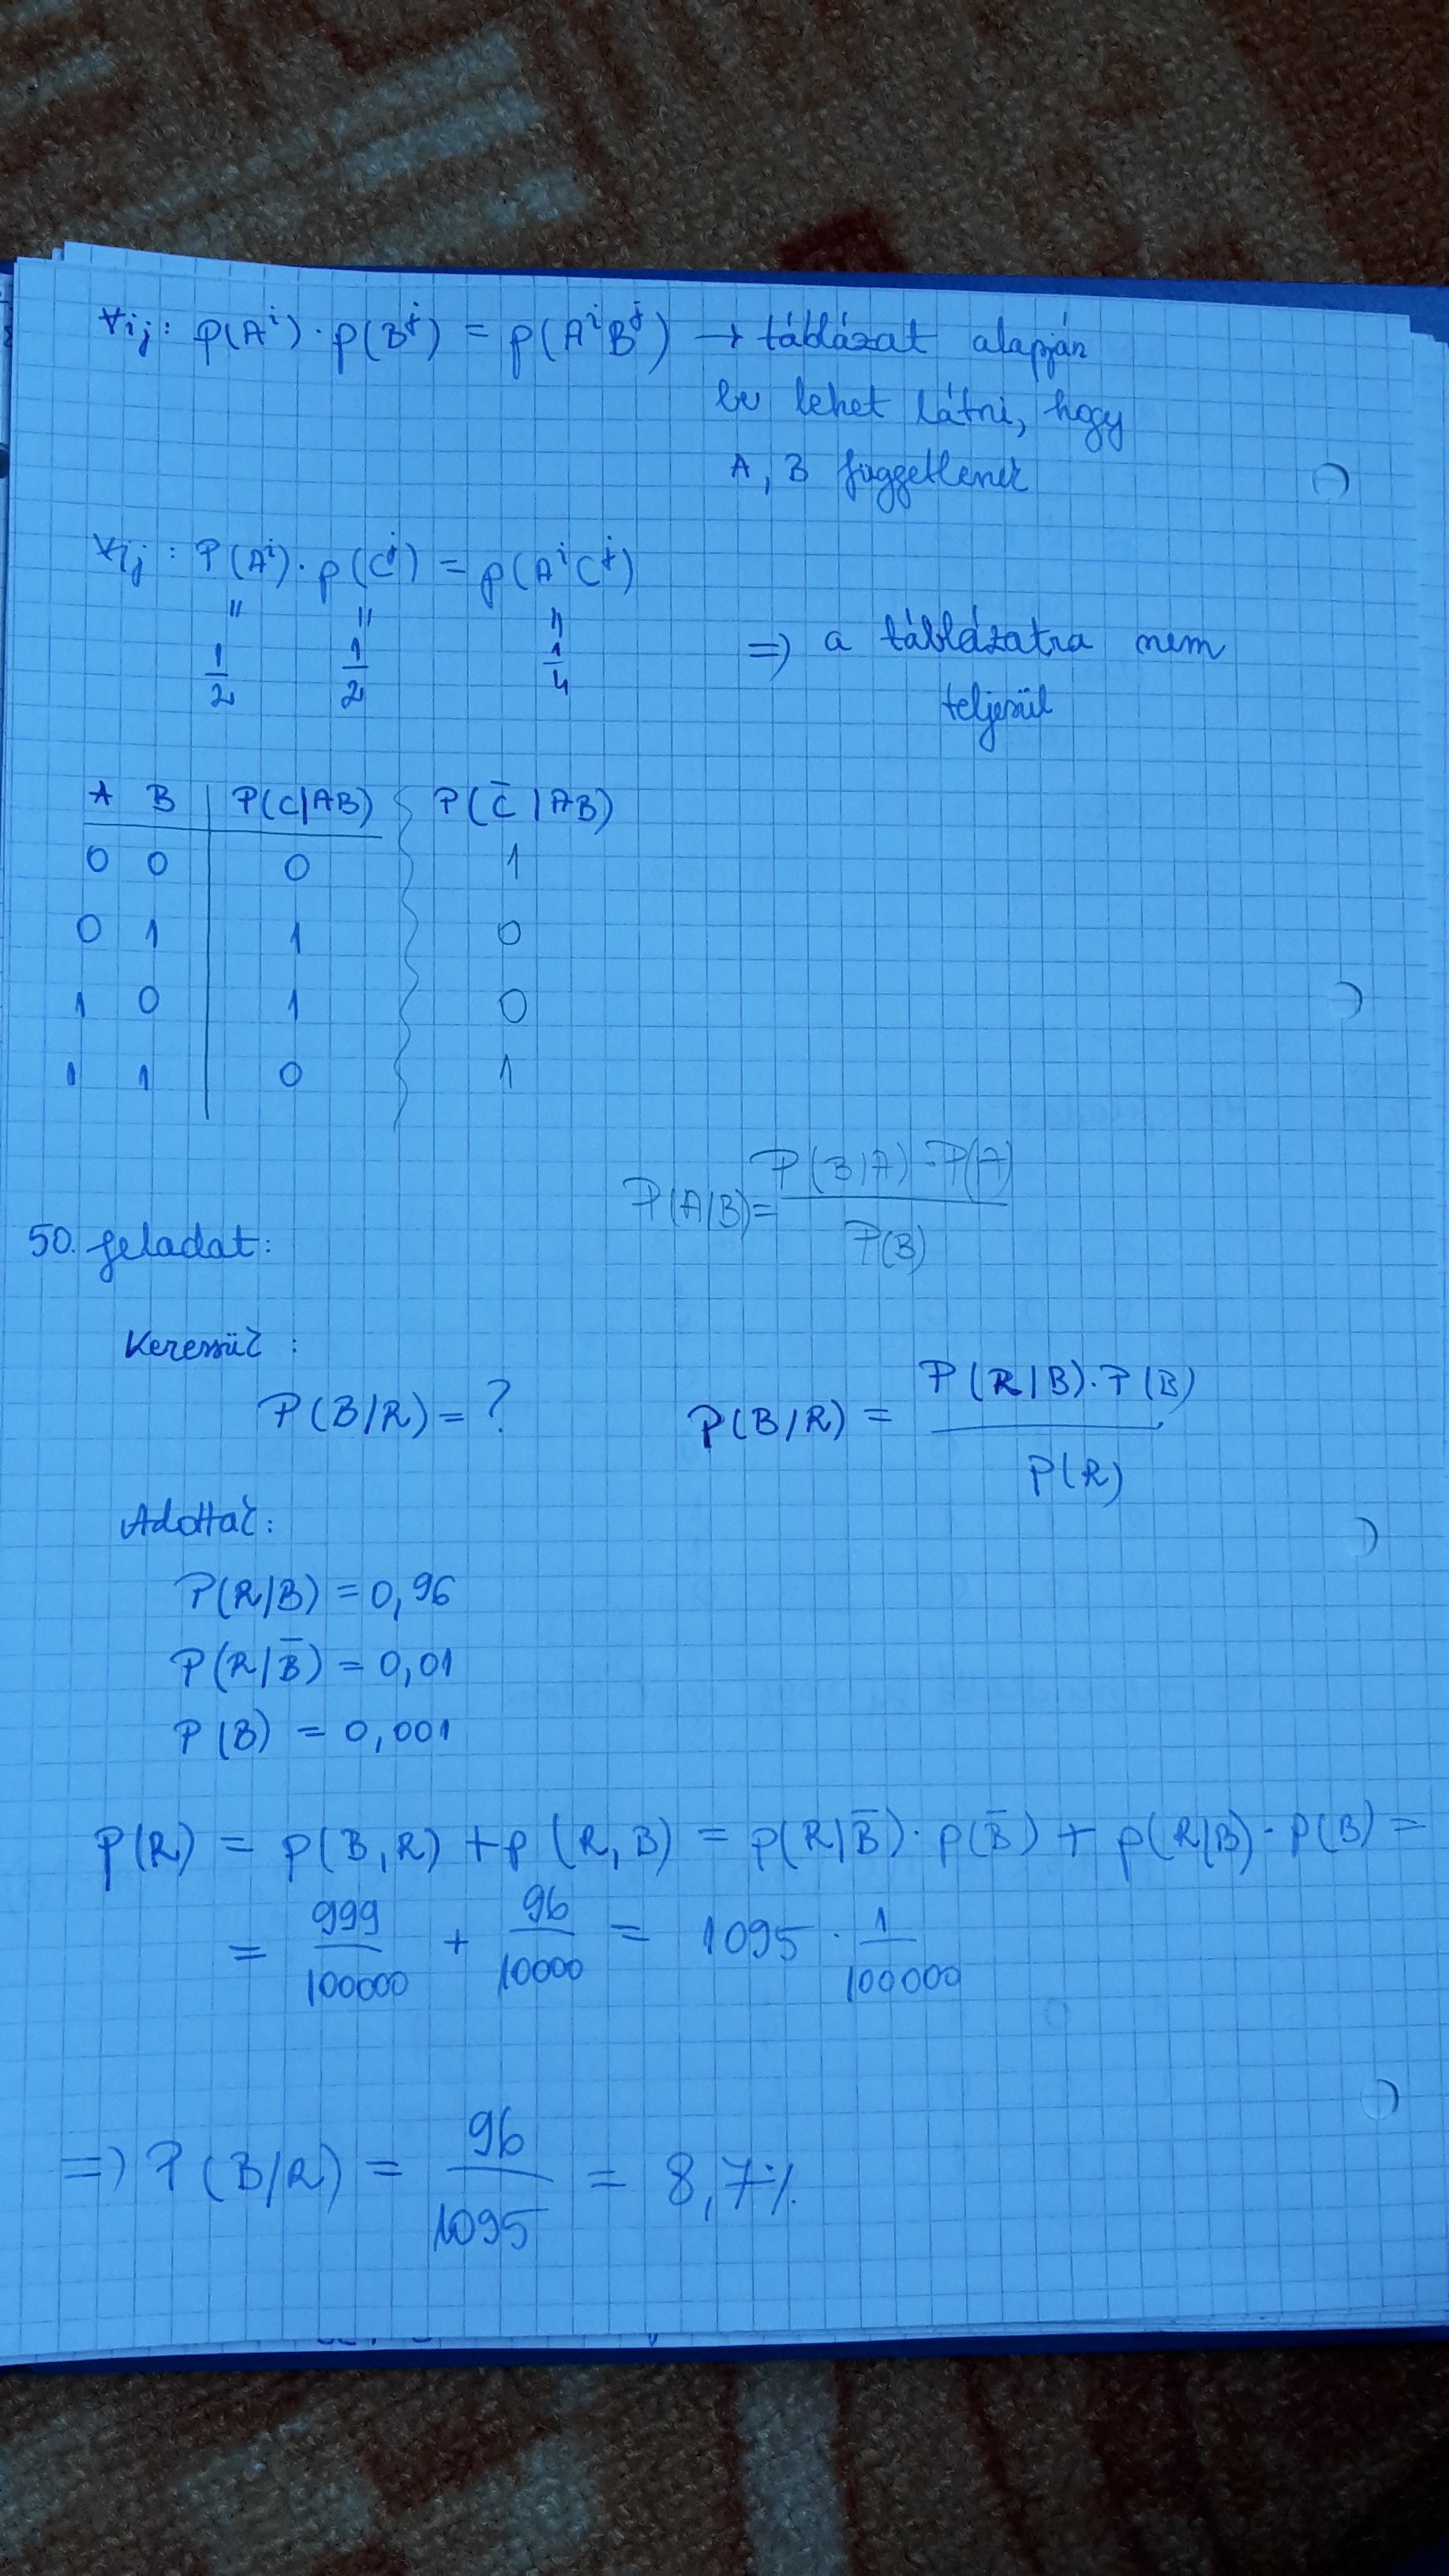 ∀ij: p(A^i) · p(B^j) = p(A^i B^j) → táblázat alapján
be lehet látni, hogy
A, B függetlenek
∀ij: P(A^i) · p(C^j) = p(A^i C^j)
" " "
1/2 1/2 1/4 ⇒ a táblázatra nem
teljesül
A B | P(C|AB) P(C̄|AB)
0 0 | 0 1
0 1 | 1 0
1 0 | 1 0
1 1 | 0 1
P(A|B) = P(B|A)·P(A) / P(B)
50. feladat:
Keressük:
P(B|R) = ? P(B|R) = P(R|B)·P(B) / P(R)
Adottak:
P(R|B) = 0,96
P(R|B̄) = 0,01
P(B) = 0,001
p(R) = p(B,R) + p(R,B) = p(R|B̄)·p(B̄) + p(R|B)·P(B) =
= 999/100000 + 96/10000 = 1095 · 1/100000
⇒ P(B|R) = 96/1095 = 8,7%